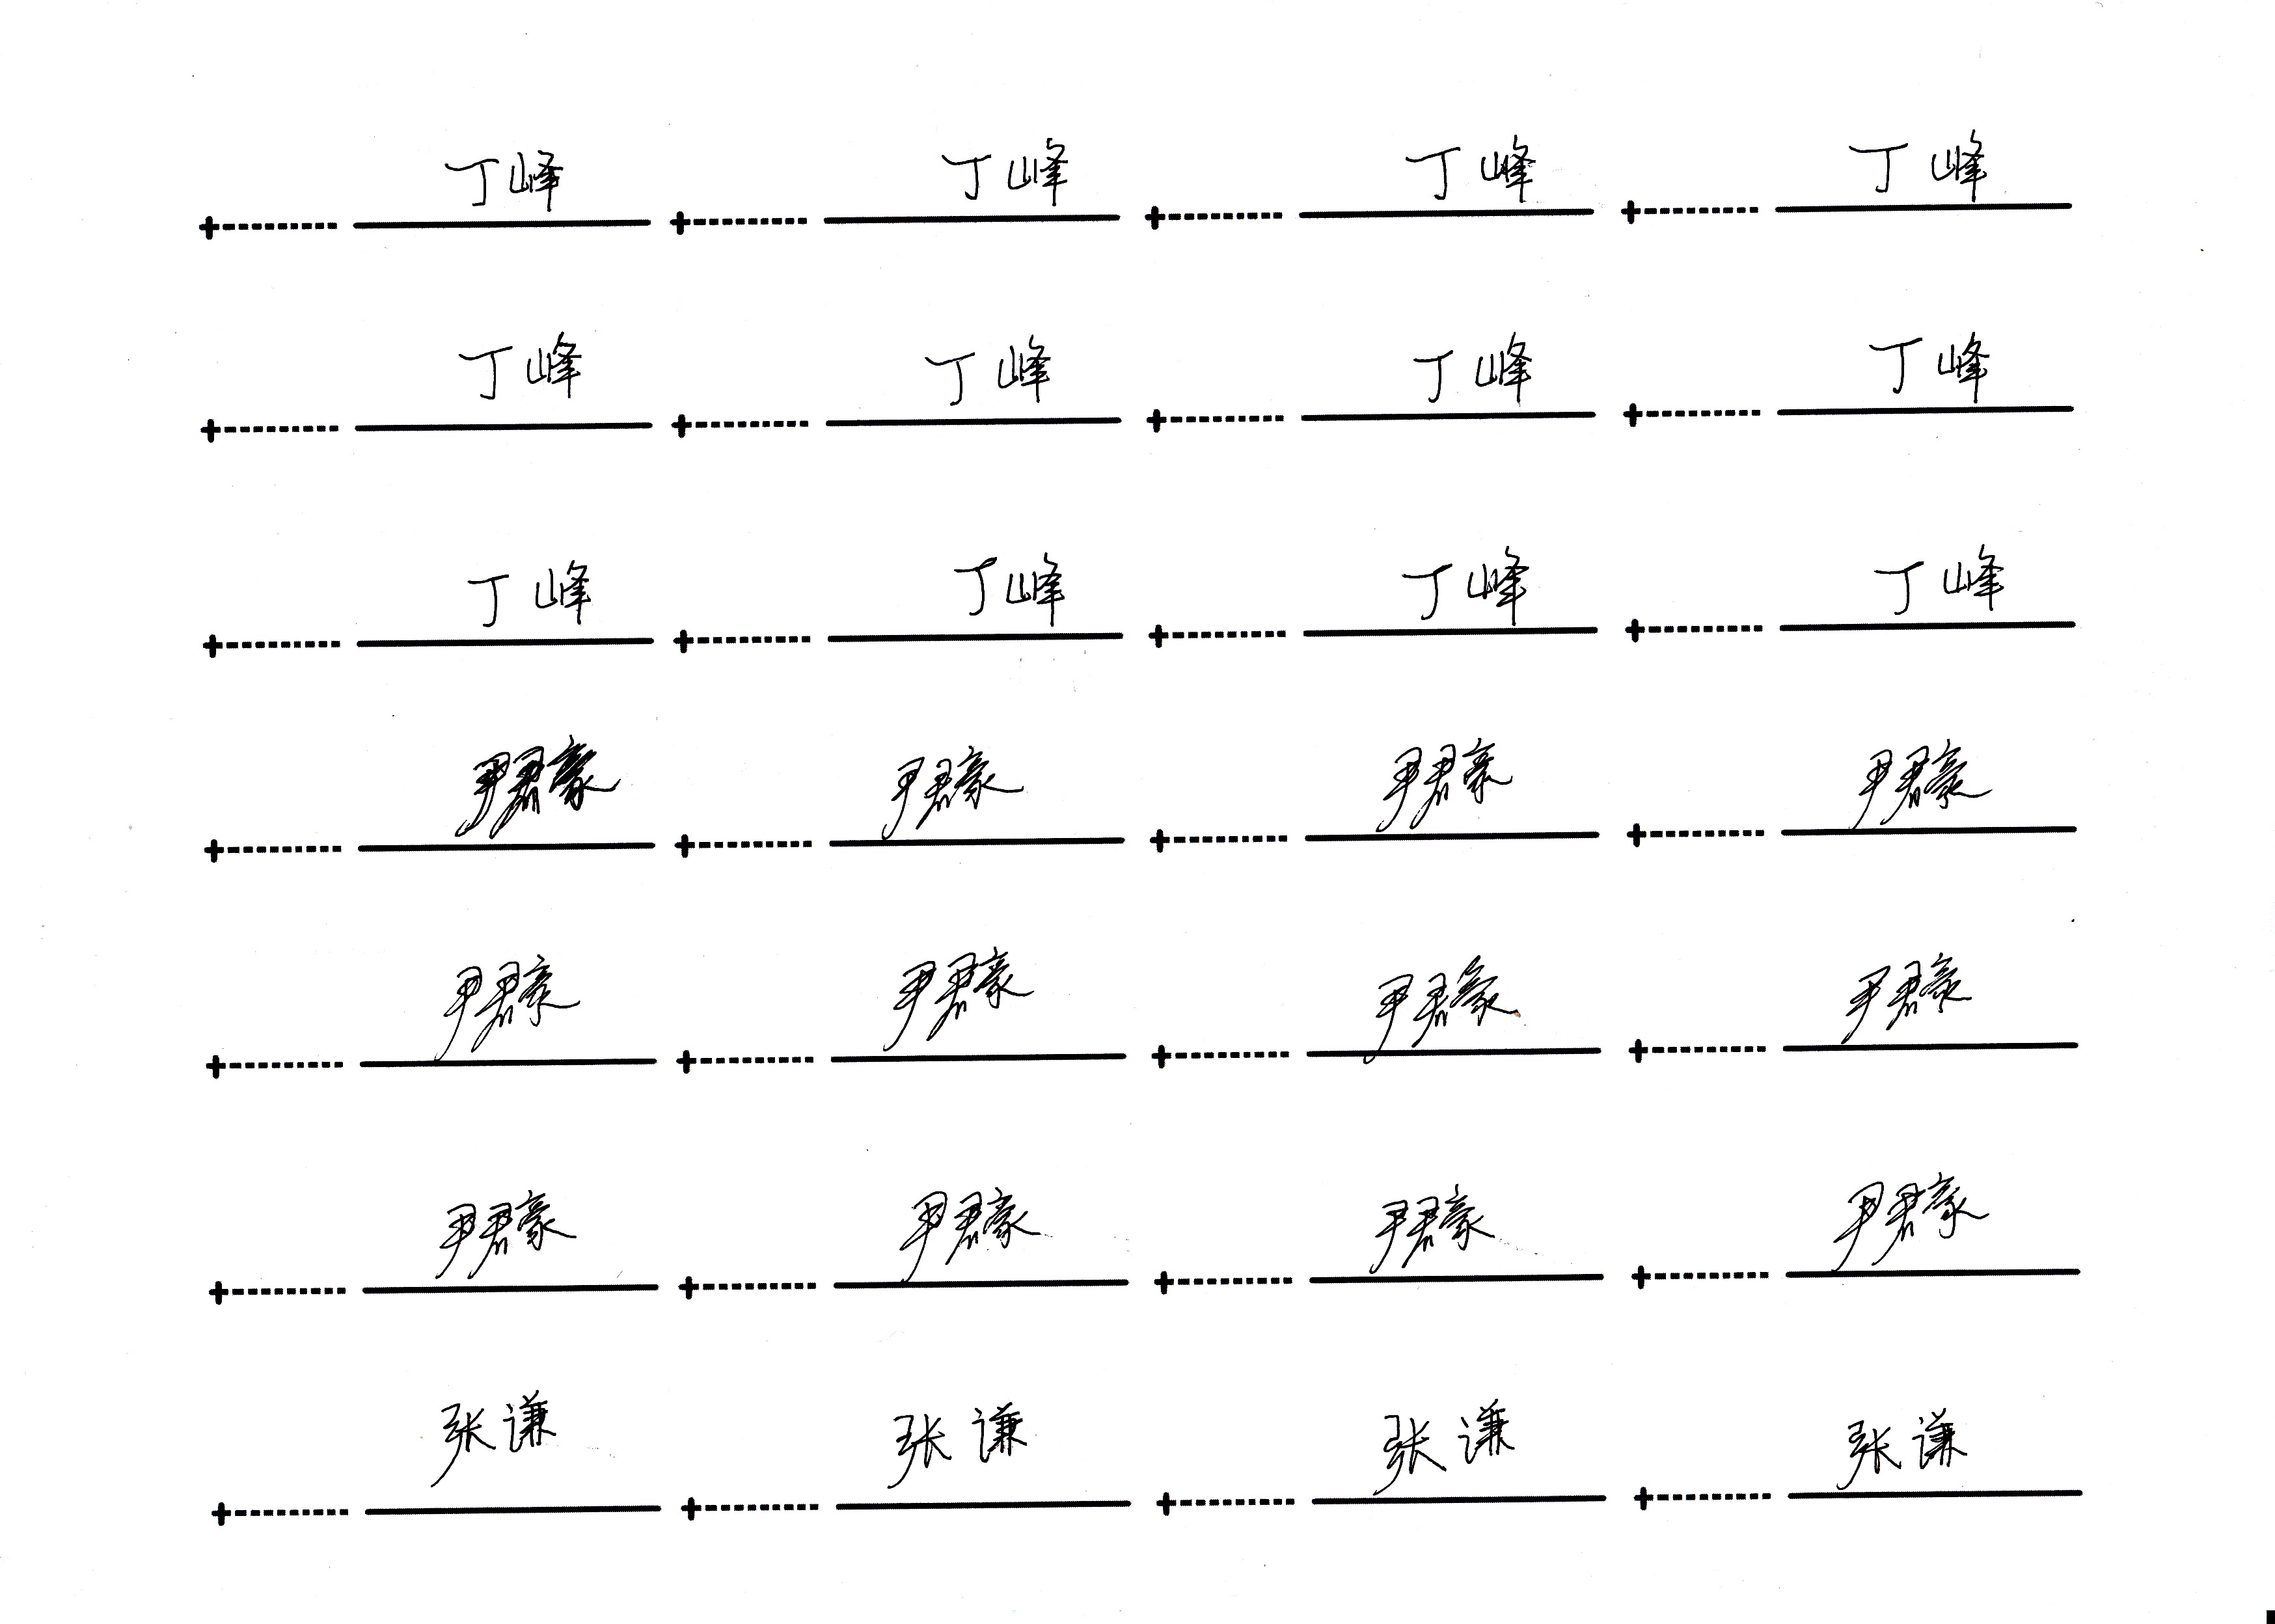 丁峰 丁峰 丁峰 丁峰
丁峰 丁峰 丁峰 丁峰
丁峰 丁峰 丁峰 丁峰
尹君豪 尹君豪 尹君豪 尹君豪
尹君豪 尹君豪 尹君豪 尹君豪
尹君豪 尹君豪 尹君豪 尹君豪
张谦 张谦 张谦 张谦